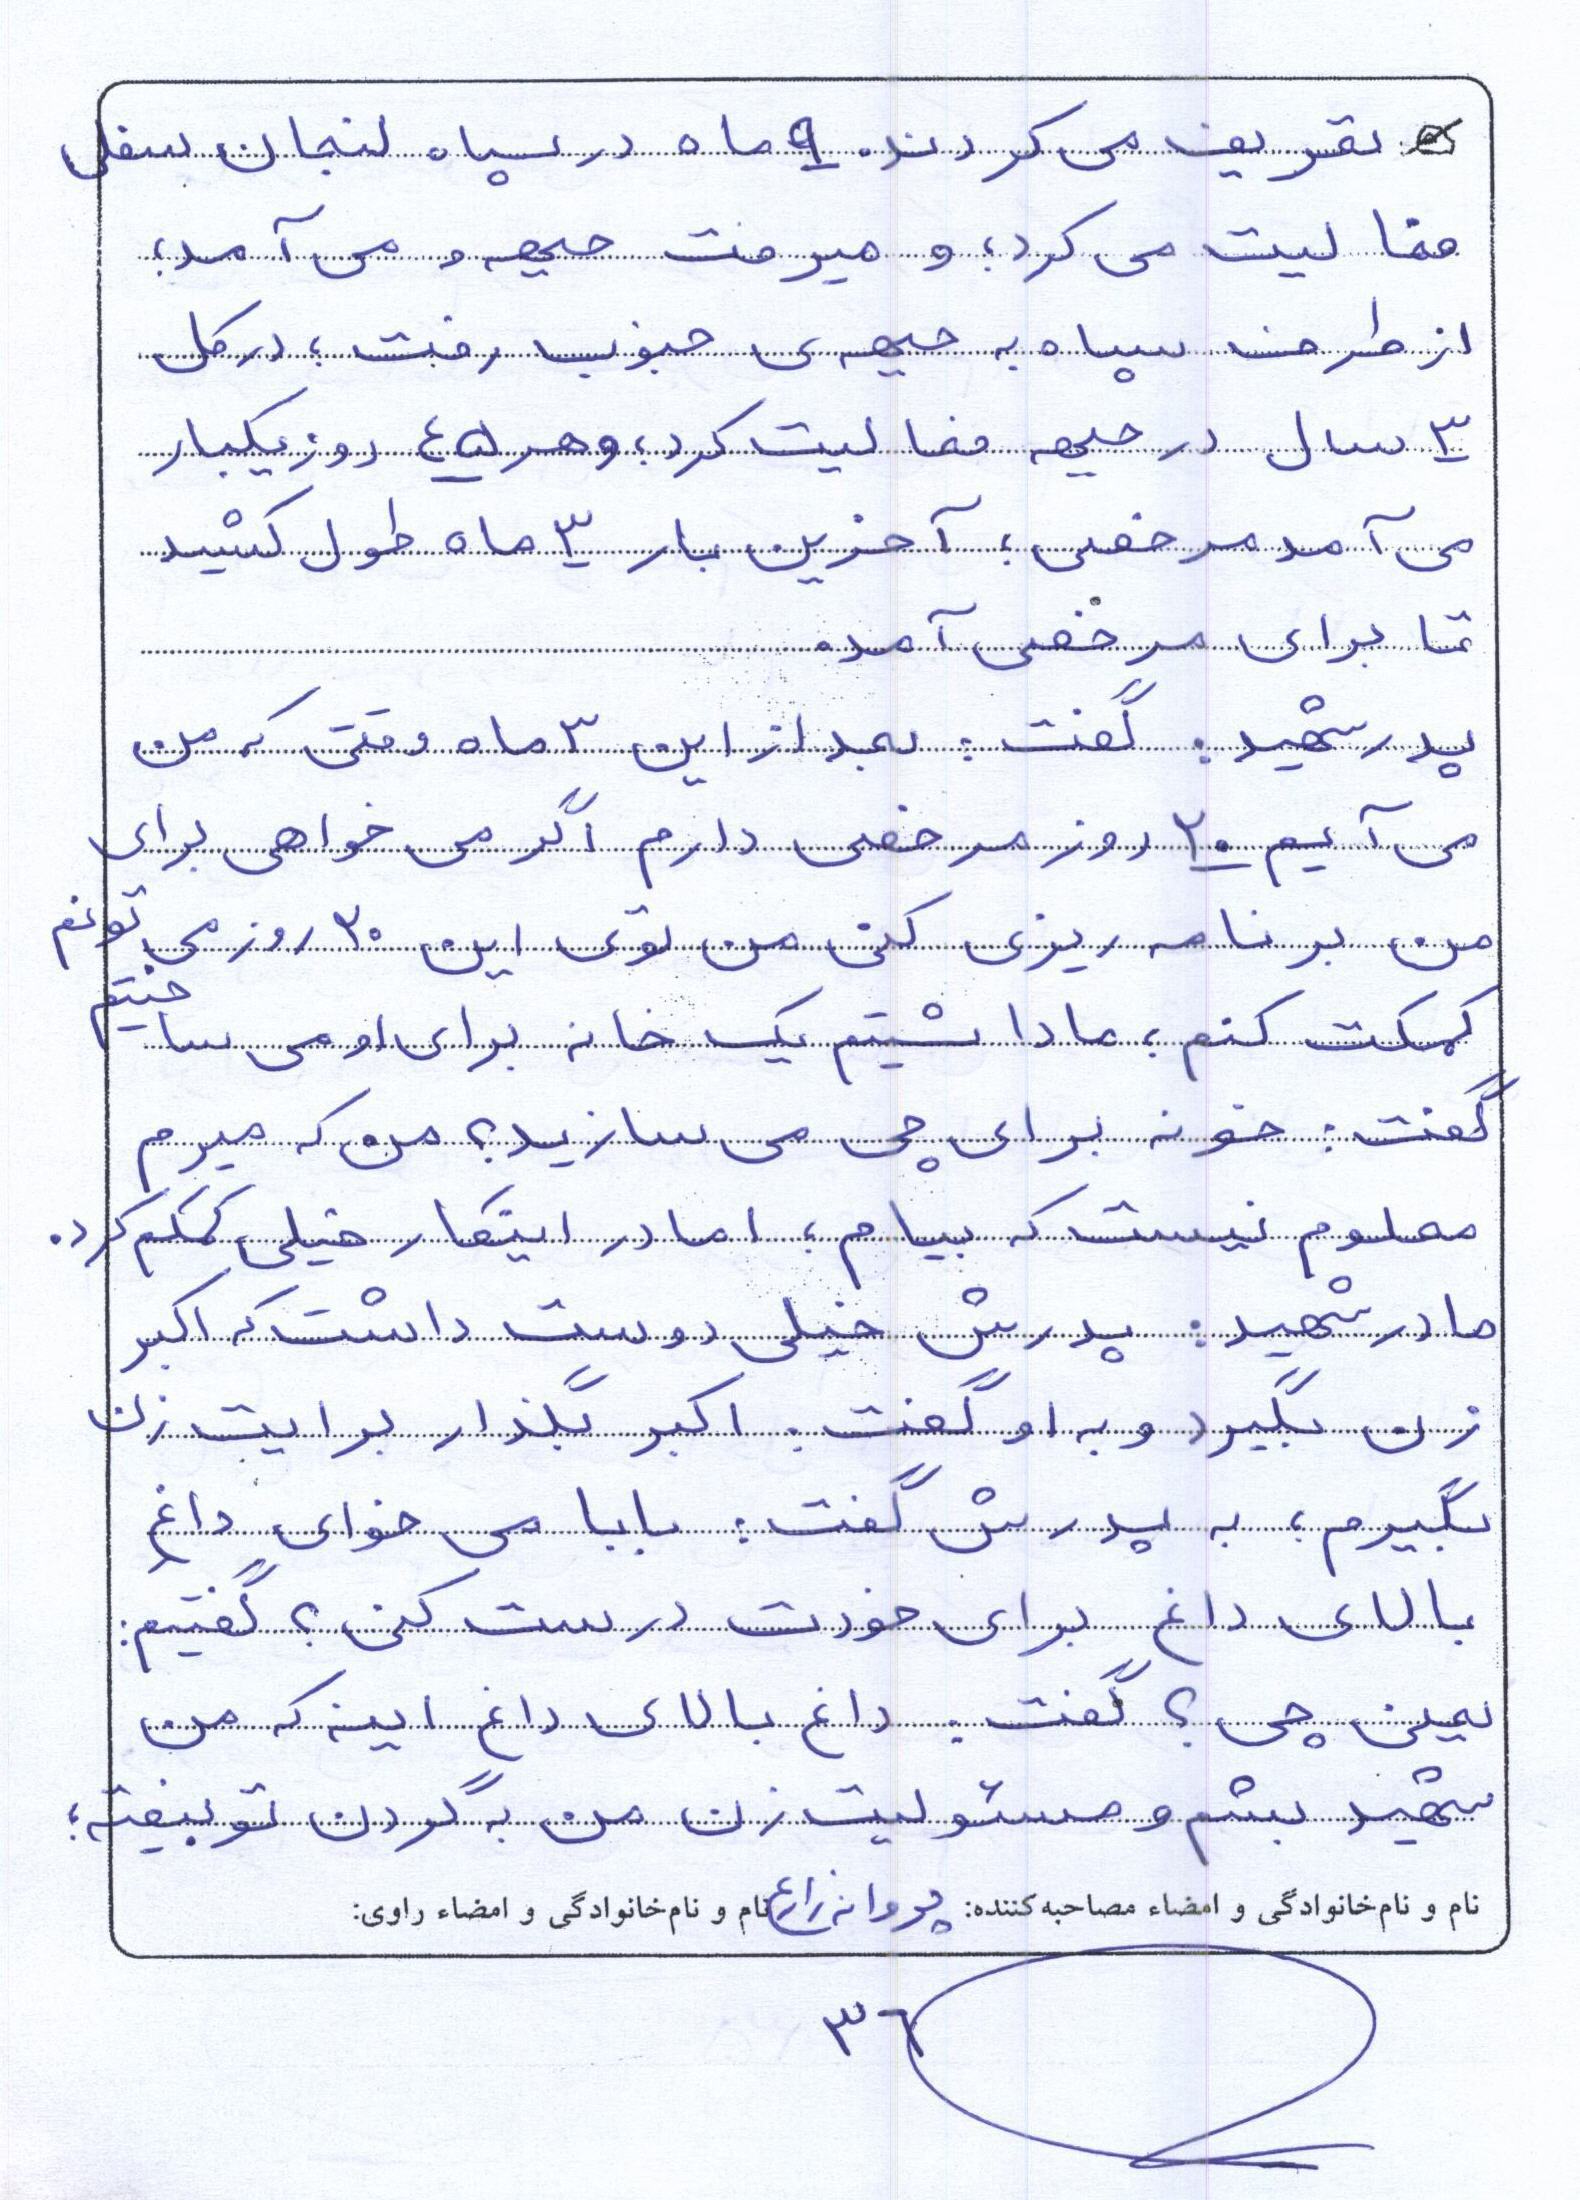 تعریف می‌کردند. ۹ ماه در سپاه لنجان سفلی
فعالیت می‌کرد؛ و میرفت جبهه و می‌آمد؛
از طرف سپاه به جبهه‌ی جنوب رفت؛ در کل
۳ سال در جبهه فعالیت کرد؛ و هر ۴۵ روز یکبار
می‌آمد مرخصی؛ آخرین بار ۳ ماه طول کشید
تا برای مرخصی آمد.
پدر شهید: گفت: بعد از این ۳ ماه وقتی که من
می‌آییم ۲۰ روز مرخصی دارم اگر می‌خواهی برای
من برنامه ریزی کنی من توی این ۲۰ روز می‌تونم
کمکت کنم؛ ما داشتیم یک خانه برای او می‌ساختیم
گفت: خونه برای چی می‌سازید؟ من که میرم
معلوم نیست که بیام؛ اما در اینکار خیلی کمکم کرد.
مادر شهید: پدرش خیلی دوست داشت که اکبر
زن بگیرد و به او گفت: اکبر بگذار برایت زن
بگیرم؛ به پدرش گفت: بابا می‌خوای داغ
بالای داغ برای خودت درست کنی؟ گفتیم:
یعنی چی؟ گفت: داغ بالای داغ اینه که من
شهید بشم و مسئولیت زن من به گردن تو بیفته؛
نام و نام‌خانوادگی و امضاء مصاحبه‌کننده: پروانه زارع نام و نام‌خانوادگی و امضاء راوی:
۳۶